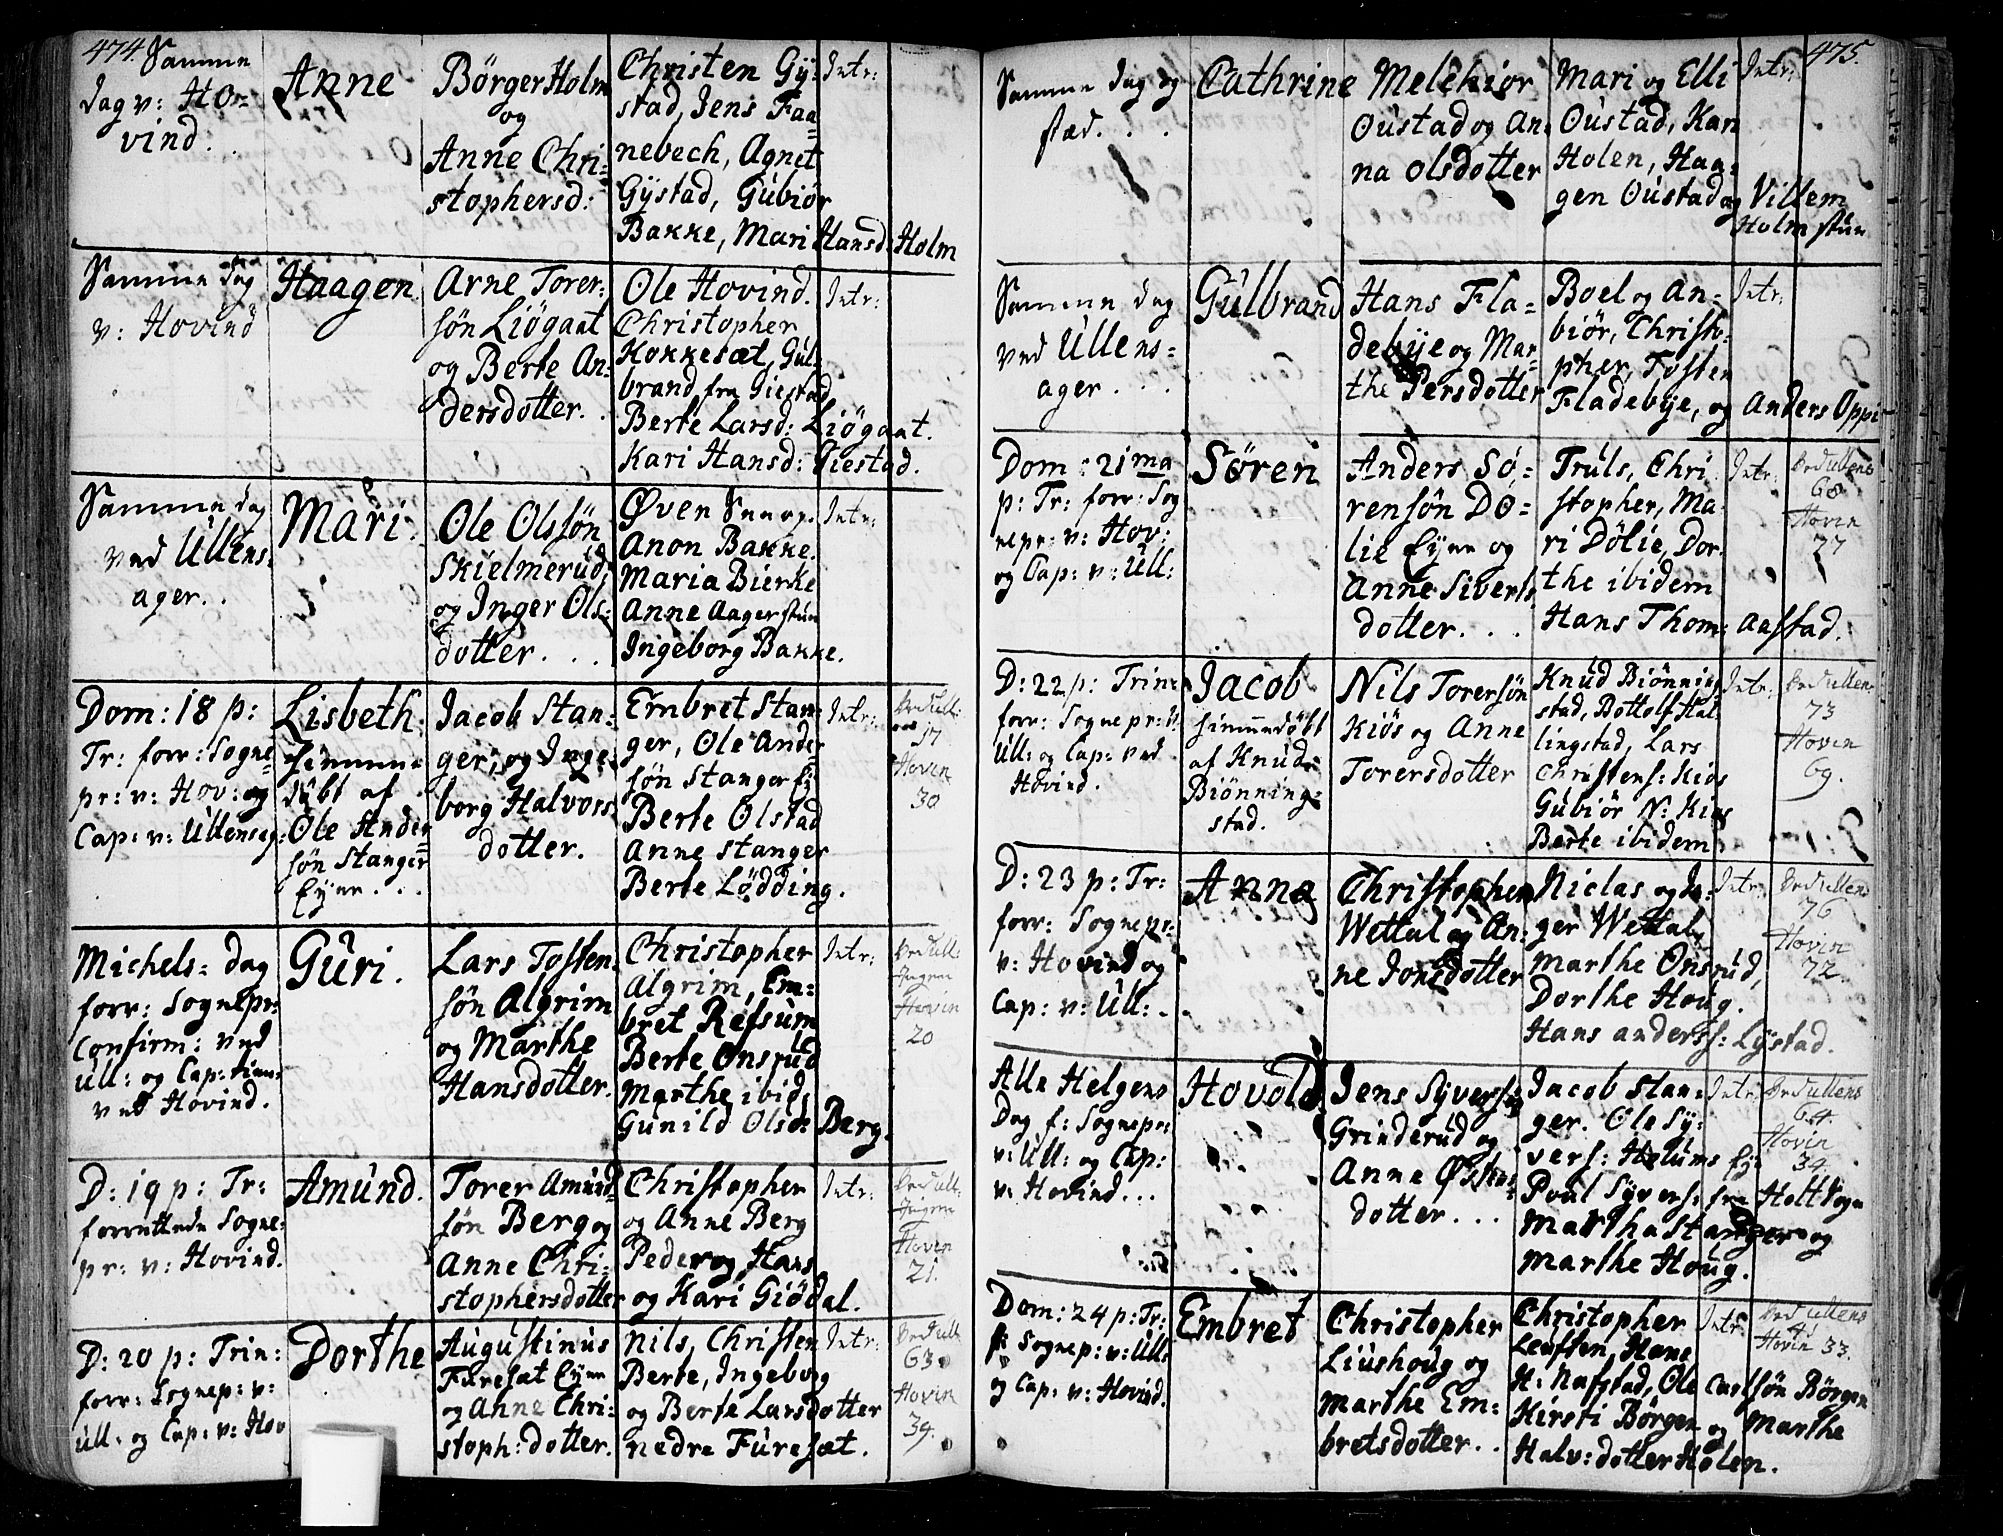 474.
Samme
dag v: Ho=
vind.
Anne
Börger Holm
og
Anne Chri=
stophersd:
Christen Gÿ=
stad, Jens Faa=
nebech, Agnet
Gÿstad, Gubiör
Bakke, Mari Hansd: Holm
Intr:
Samme dag
v: Hovind
Haagen.
Arne Torer=
søn Liögaat
og Berte An=
dersdotter.
Ole Hovind.
Christopher
Kokkesæt, Gul=
brand fra Giestad
Berte Larsd: Liögaat.
Kari Hansd: Giestad.
Intr:
Samme dag
ved Ullens=
ager.
Mari.
Ole Olssön
Skielmerud,
og Inger Ols=
dotter.
Öven
Anon Bakke.
Maria Bierke
Anne Aagerstun
Ingeborg Bakke.
Intr:
Dom: 18 p:
Tr: forr: Sogne=
pr: v: Hov: og
Cap: v: Ullensag:
Lisbeth.
hjemme=
döbt af
Ole Ander
søn Stanger
Eyer
Jacob Stan=
ger, og Inge=
borg Halvors
dotter.
Embret Stan=
ger, Ole Ander
søn Stanger Ey
Berte Olstad
Anne Stanger
Berte Lödding.
Intr:
Ved Ull:
17
Hovin
30
Michels= dag
forr: Sognepr:
Confirm: ved
Ull: og Cap:
ved Hovind.
Guri.
Lars Tosten=
søn Algrim
og Marthe
Hansdotter.
Christopher
Algrim, Em=
bret Refsum
Berte Onsrud
Marthe ibid:
Gunild Olsd: Berg.
Intr:
Ved Ull:
Ingen
Hovin
20
D: 19 p: Tr:
forrettede Sogne=
pr: v: Hovind.
Amund.
Torer Amund
søn Berg og
Anne Chri=
stophersdotter
Christopher
og Anne Berg
Peder og Hans
og Kari Giödal.
Intr:
Ved Ull:
Ingen
Hovin
21.
D: 20 p: Trin:
forr: Sognep: v:
Ull. og Cap: v: Hov
Dorthe
Augustinus
Furesæt Eyer
og Anne Chri=
stoph: dotter.
Nils, Christen
Berte, Ingeborg
og Berte Larsdotter
nedre Furesæt.
Intr:
Ved Ull:
63.
Hovin
39.
475.
Samme dag og
stæd.
Cathrine
Melchior
Oustad og An=
na Olsdotter
Mari og Elli
Oustad, Kari
Holen, Haa=
gen Oustad og Villem
Holmstun
Intr:
Samme dag
ved Ullens=
ager.
Gulbrand
Hans Fla=
debÿe og Mar=
the Persdotter
Boel og An=
biör, Christo=
pher, Tosten
Fladebÿe, og Anders Oppi
Intr:
Dom: 21 ma
p: Tr: forr: Sog
nepr: v: Hov:
og Cap: v: Ull:
Sören
Anders Sö=
rensön Dö=
lie Eyer og
Anne Siverts
dotter.
Truls, Chri
stopher, Ma=
ri Dölie, Dor
the ibidem
Hans Thom: Aasstad.
Intr:
Ved Ullens
68
Hovin
77
D: 22 p: Trin:
forr: Sognepr: v:
Ull: og Cap: ved
Hovind.
Jacob
himmedöbt
af Knud
Biönning=
stad.
Nils Torersön
Kiös og Anne
Torersdotter
Knud Biönning
stad, Bottolf Hal
lingstad, Lars
Christens: Kiös
Gubiör N: Kiös
Berte ibidem
Intr:
Ved Ullens
73
Hovin
69.
D: 23 p: Tr:
forr: Sognepr:
v: Hovind og
Cap: v: Ull:
Anna
Christopher
Wettal og An=
ne Jonsdotter
Niclas og In=
ger Wettal,
Marthe Onsrud,
Dorthe Houg.
Hans anderss: Lÿstad.
Intr:
Ved Ullens
76
Hovin
72.
Alle Helgens
Dag f: Sognepr:
v: Ull: og Cap:
v: Hovind...
Hovold
Jens Sÿvers:
Grinderud og
Anne Östens
dotter...
Jacob Stan=
ger. Ole Sÿ=
vers: Helums Ey
Poul Sÿvers: fra Holt Sogn
Martha Stanger og
Marthe Houg.
Intr:
Ved Ullens
64.
Hovin
34.
Dom: 24 p: Tr:
f: Sognep: v: Ull:
og Cap: v: Hovind.
Embret
Christopher
Liushoug og
Marthe Em=
bretsdotter.
Christopher
Leufsen, Hans
H: Nafstad, Ole Carlsön Börgen
Kirsti Börgen og Marthe
Halv: dotter Holen.
Intr
Ved Ullens
41
Hovin 33.